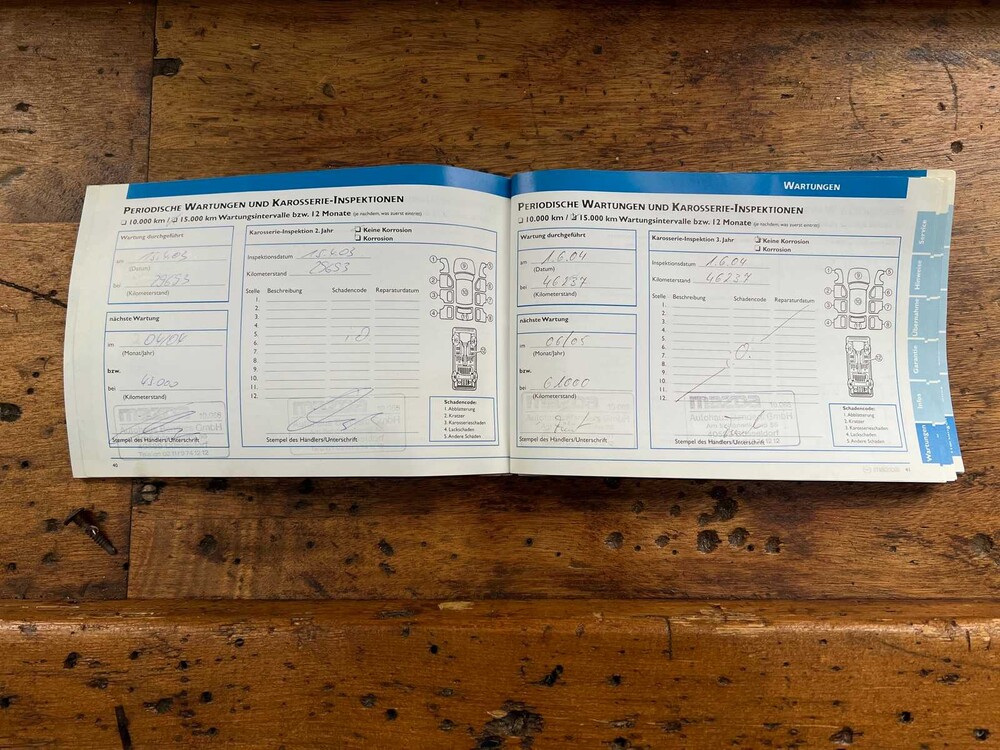 PERIODISCHE WARTUNGEN UND KAROSSERIE-INSPEKTIONEN
10.000 km / 15.000 km Wartungsintervalle bzw. 12 Monate (je nachdem, was zuerst eintritt)
Wartung durchgeführt
am 15.4.03
(Datum)
bei 29653
(Kilometerstand)
nächste Wartung
im 04/04
(Monat/Jahr)
bzw.
bei 43000
(Kilometerstand)
mazda
Stempel des Händlers/Unterschrift
Karosserie-Inspektion 2. Jahr
Keine Korrosion
Korrosion
Inspektionsdatum 15.4.03
Kilometerstand 29653
Stelle Beschreibung Schadencode Reparaturdatum
1.
2.
3.
4.
5.
6.
7.
8.
9.
10.
11.
12.
mazda
Stempel des Händlers/Unterschrift
Schadencode:
1. Abblätterung
2. Kratzer
3. Karosserieschaden
4. Lackschaden
5. Andere Schäden
40
WARTUNGEN
PERIODISCHE WARTUNGEN UND KAROSSERIE-INSPEKTIONEN
10.000 km / 15.000 km Wartungsintervalle bzw. 12 Monate (je nachdem, was zuerst eintritt)
Wartung durchgeführt
am 1.6.04
(Datum)
bei 46237
(Kilometerstand)
nächste Wartung
im 06/05
(Monat/Jahr)
bzw.
bei 61000
(Kilometerstand)
Stempel des Händlers/Unterschrift
Karosserie-Inspektion 3. Jahr
Keine Korrosion
Korrosion
Inspektionsdatum 1.6.04
Kilometerstand 46237
Stelle Beschreibung Schadencode Reparaturdatum
1.
2.
3.
4.
5.
6.
7.
8.
9.
10.
11.
12.
mazda
Stempel des Händlers/Unterschrift
Schadencode:
1. Abblätterung
2. Kratzer
3. Karosserieschaden
4. Lackschaden
5. Andere Schäden
41
Service
Hinweise
Übernahme
Garantie
Infos
Wartungen